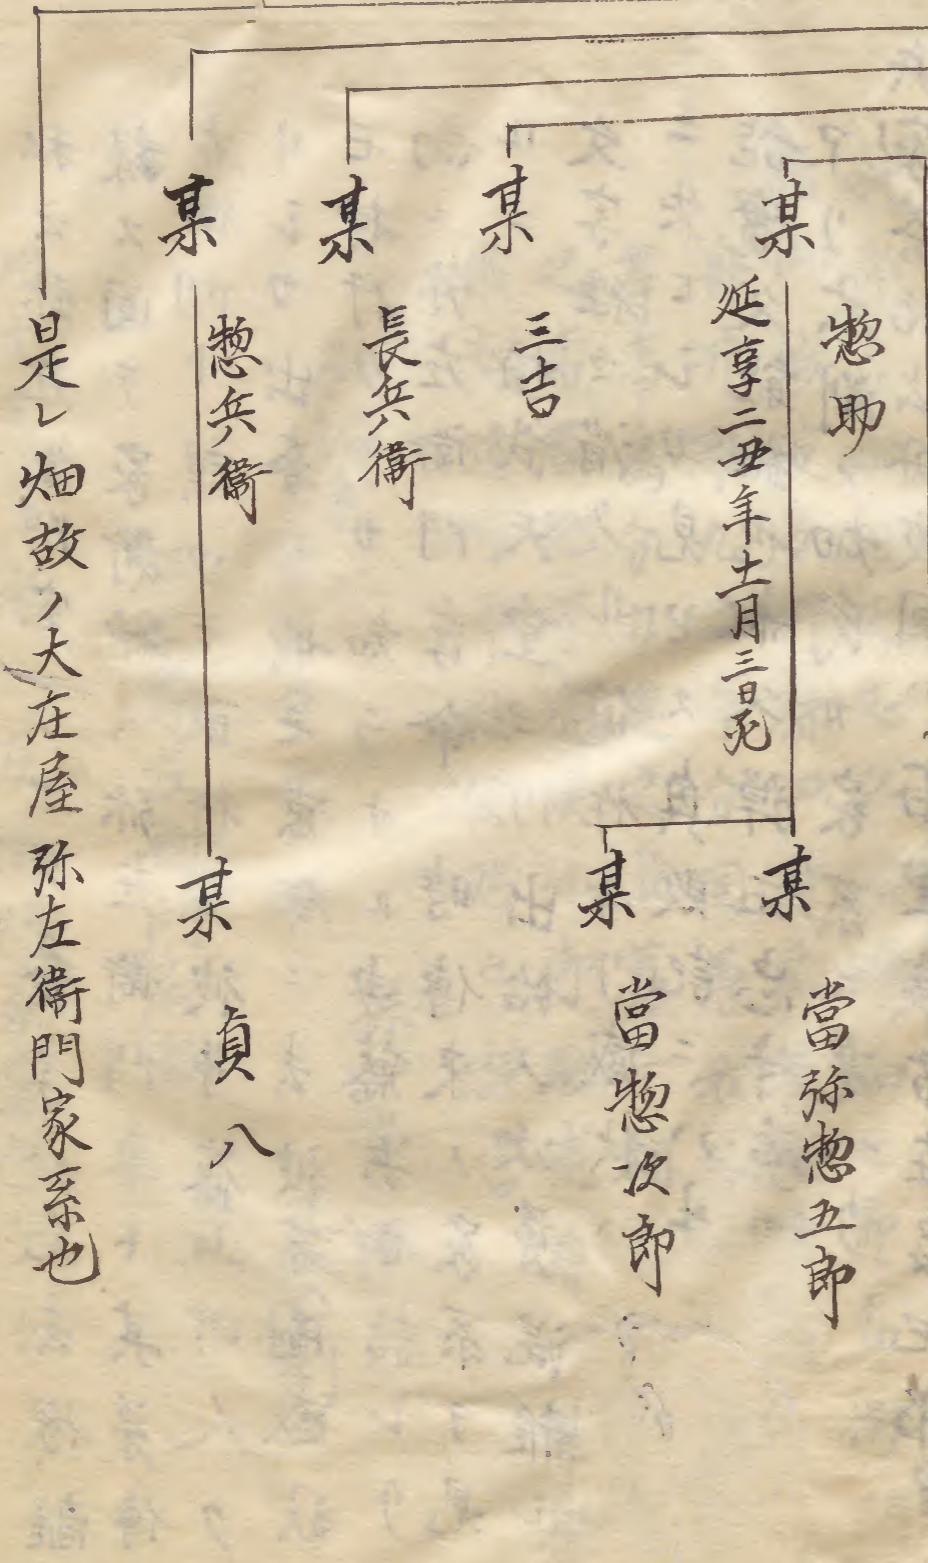 某
惣助
延享二丑年十一月三日死
某
當弥惣五郎
某
當惣次郎
某
三吉
某
長兵衞
某
惣兵衞
某
貞八
是レ畑故ノ大庄屋弥左衞門家系也